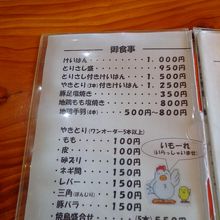 御食事
けいはん・・・・・1.000円
とりさし盛・・・・・950円
とりさし付きけいはん・1.500円
やきとり(3本)付きけいはん・1.500円
豚足塩焼き・・・・・350円
地鶏もも塩焼き・・・・800円
地鶏手羽(4本)・・・・500円
やきとり(ワンオーダー5本以上)
・もも・・・・100円
・皮・・・・・100円
・砂スリ・・・100円
・ネギ間・・・150円
・レバー・・・100円
・三角(ぼんじり)・150円
・豚バラ・・・150円
・焼鳥盛合せ
いもーれ
(いらっしゃいませ)